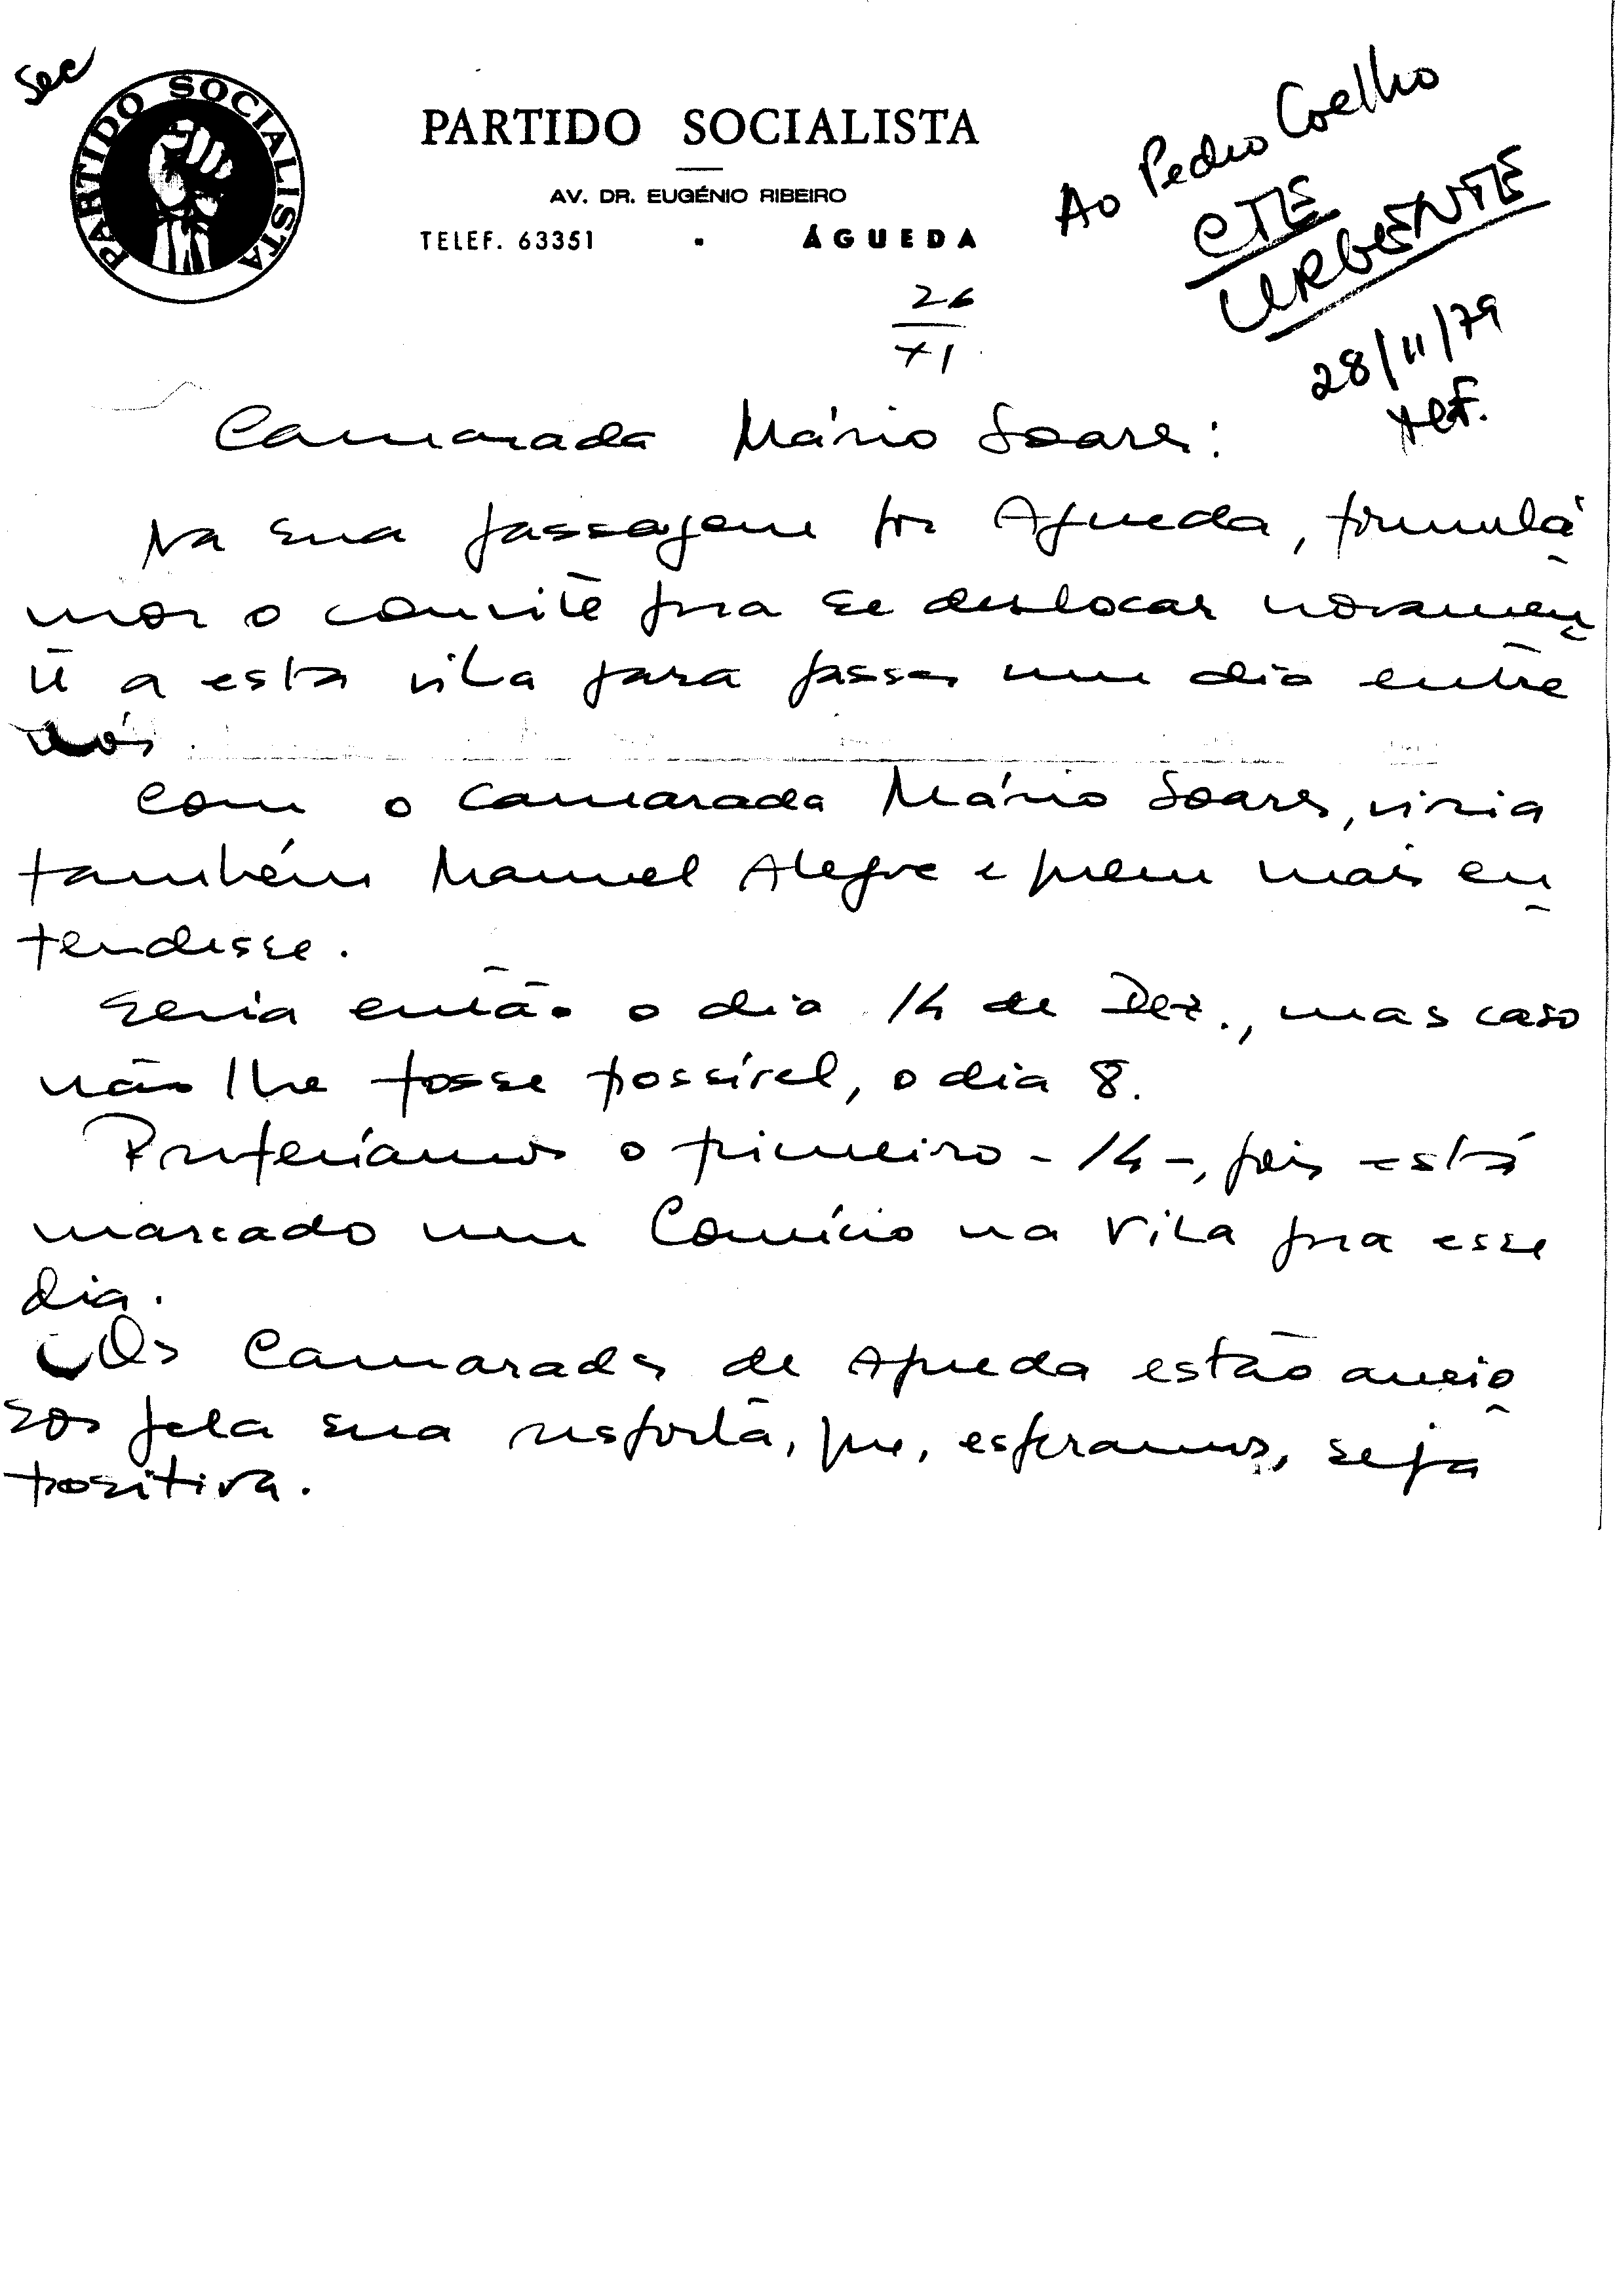 Sec
PARTIDO SOCIALISTA
PARTIDO SOCIALISTA
AV. DR. EUGÉNIO RIBEIRO
TELEF. 63351 • ÁGUEDA
Ao Pedro Coelho
CTE
URGENTE
28/11/79
26
71
Camarada Mário Soares:
Na sua passagem por Agueda, formulá
mos o convite para se deslocar novamen
te a esta vila para passar um dia entre
nós
Com o camarada Mário Soares, viria
também Manuel Alegre e quem mais en
tendesse.
Seria então o dia 14 de Dez., mas caso
não lhe fosse possível, o dia 8.
Preferíamos o primeiro - 14 -, pois está
marcado um Comício na Vila para esse
dia.
Os Camaradas de Agueda estão ansio
sos pela sua resposta, que, esperamos, seja
positiva.